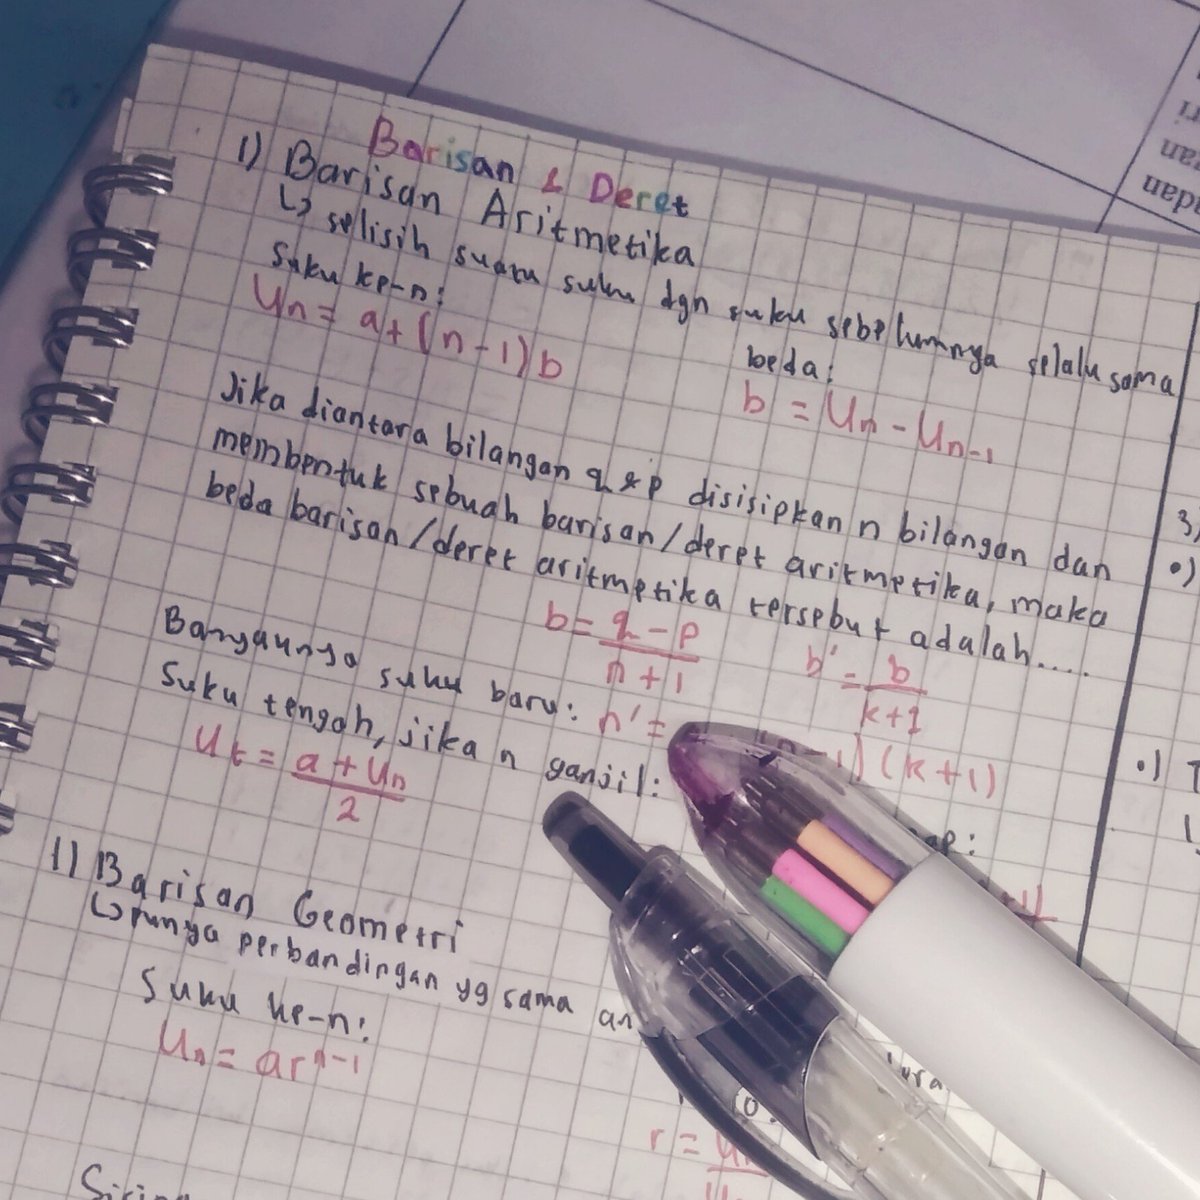 Barisan & Deret
1) Barisan Aritmetika
↳ selisih suatu suku dgn suku sebelumnya selalu sama
Suku ke-n:
Un = a + (n-1)b
beda:
b = Un - Un-1
Jika diantara bilangan q & p disisipkan n bilangan dan
membentuk sebuah barisan/deret aritmetika, maka
beda barisan/deret aritmetika tersebut adalah....
b = q - p / n + 1
b' = b / k+1
Banyaunya suku baru: n' = (k+1)
Suku tengah, jika n ganjil:
Ut = a + Un / 2
1) Barisan Geometri
↳ punya perbandingan yg sama
Suku ke-n:
Un = ar^n-1
r =
3)
•)
•)